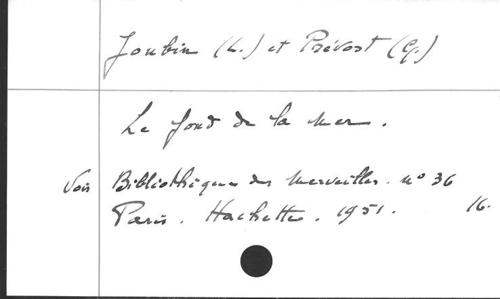 Joubin (L.) et Prévost (G.)
Le fond de la mer.
Voir Bibliothèque des Merveilles. n° 36
Paris. Hachette. 1951. 16.